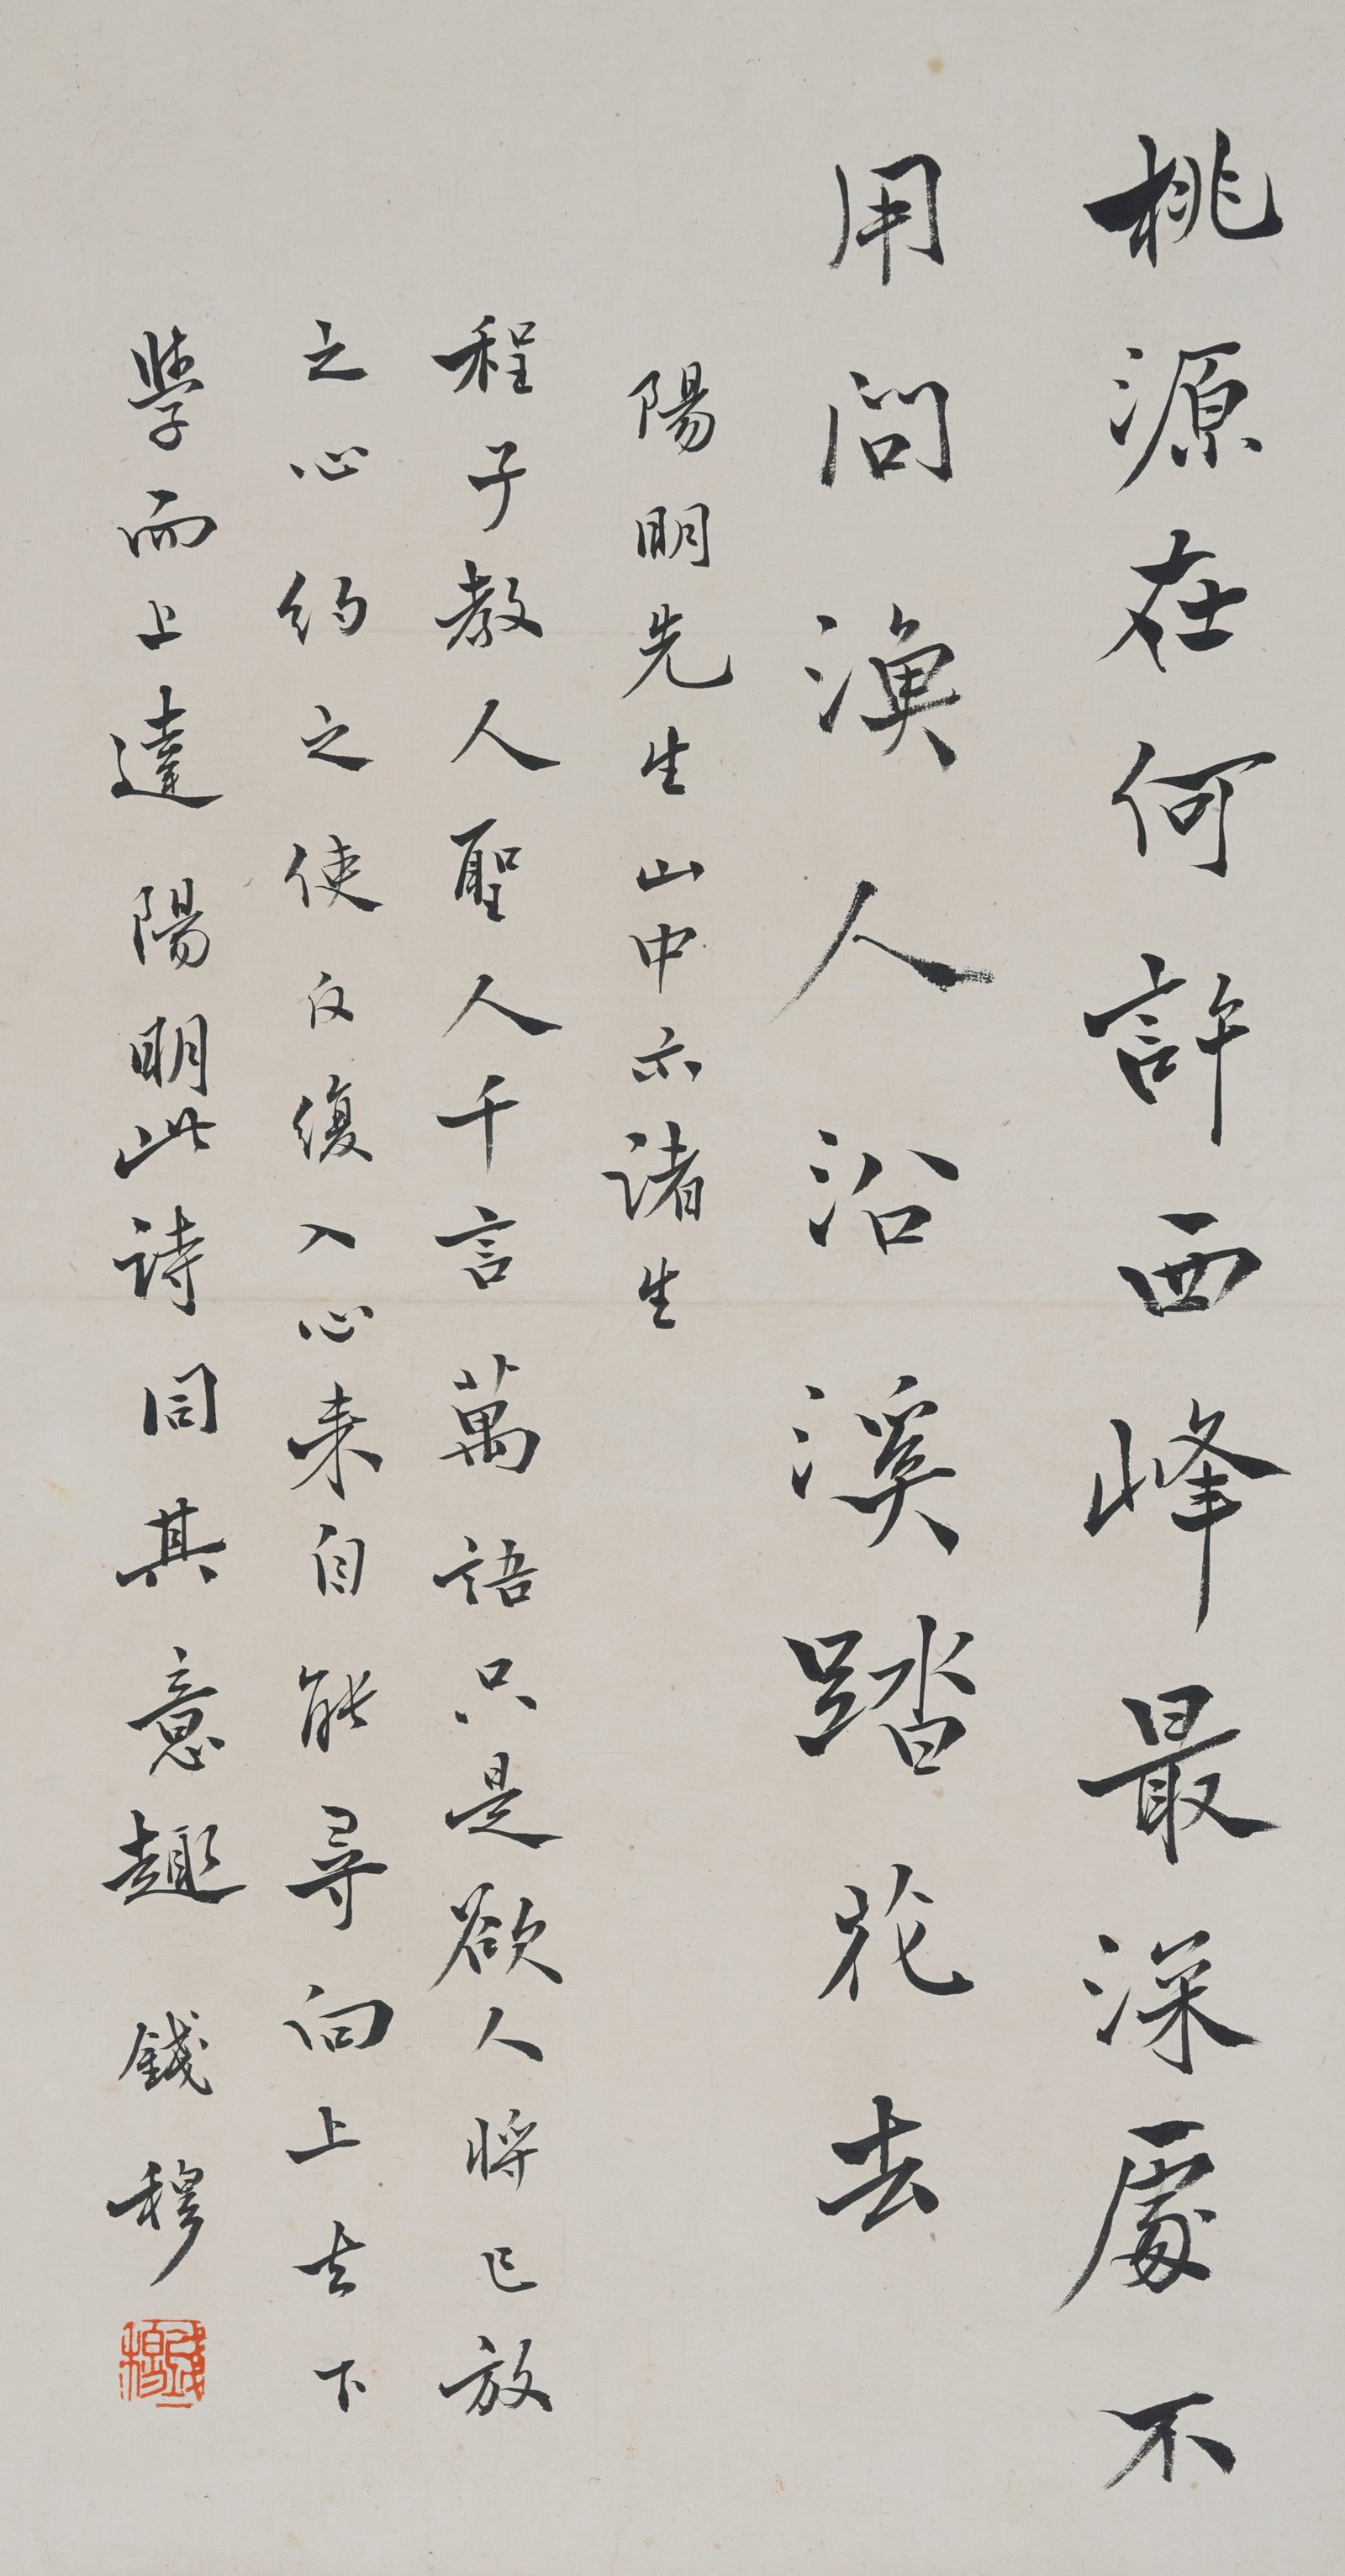 桃源在何許西峰最深處不
用問漁人沿溪踏花去
陽明先生山中示諸生
程子教人聖人千言萬語只是欲人將已放
之心約之使反復入心来自能尋向上去下
學而上達陽明此詩同其意趣 錢穆
錢穆